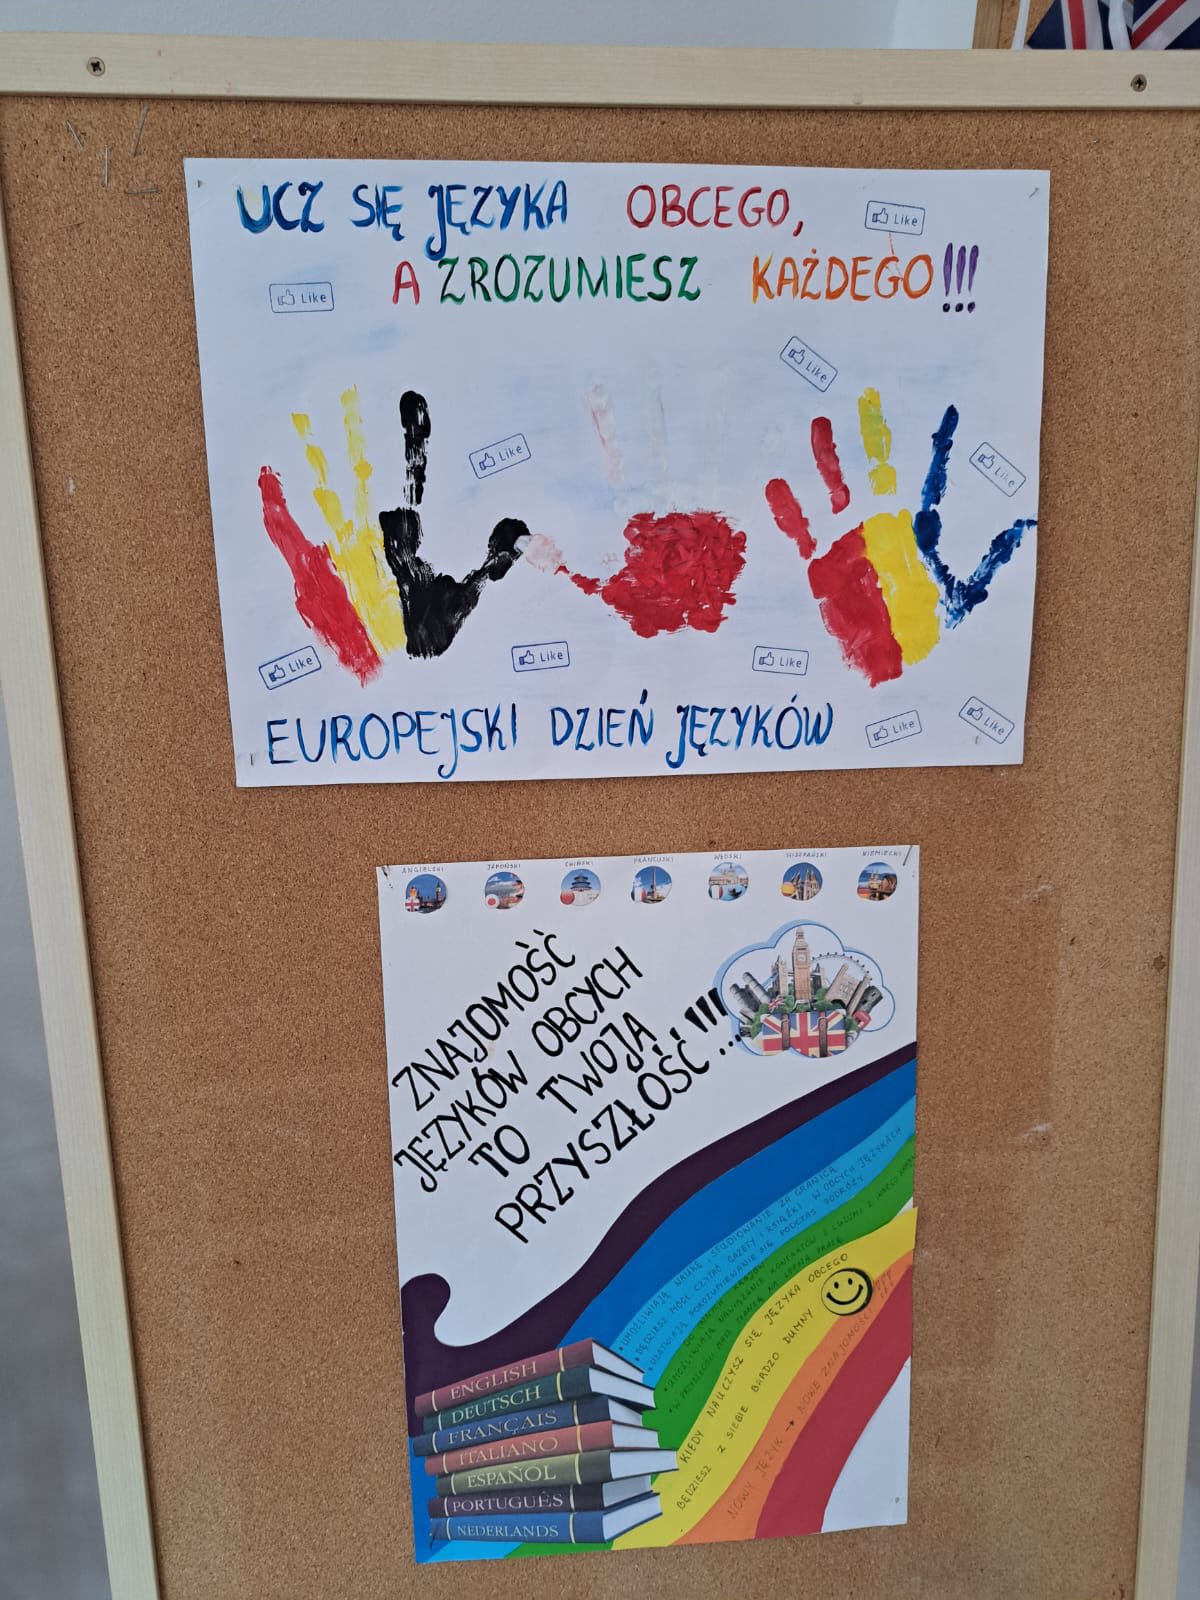 UCZ SIĘ JĘZYKA OBCEGO,
A ZROZUMIESZ KAŻDEGO!!!
Like
Like
Like
Like
Like
Like
Like
Like
Like
Like
EUROPEJSKI DZIEŃ JĘZYKÓW
ANGIELSKI JAPOŃSKI CHIŃSKI FRANCUSKI WŁOSKI HISZPAŃSKI NIEMIECKI
ZNAJOMOŚĆ
JĘZYKÓW OBCYCH
TO TWOJA
PRZYSZŁOŚĆ...!!!
• UMOŻLIWIAJĄ NAUKĘ, STUDIOWANIE ZA GRANICĄ
• BĘDZIESZ MÓGŁ CZYTAĆ GAZETY I KSIĄŻKI W OBCYCH JĘZYKACH
• UŁATWIAJĄ POROZUMIEWANIE SIĘ PODCZAS PODRÓŻY
DO INNYCH KRAJÓW
• UMOŻLIWIAJĄ NAWIĄZANIE KONTAKTÓW Z LUDŹMI Z INNEGO KRAJU
• W PRZYSZŁOŚCI MASZ SZANSĘ NA LEPSZĄ PRACĘ
KIEDY NAUCZYSZ SIĘ JĘZYKA OBCEGO
BĘDZIESZ Z SIEBIE BARDZO DUMNY
NOWY JĘZYK → NOWE ZNAJOMOŚCI
ENGLISH
DEUTSCH
FRANÇAIS
ITALIANO
ESPAÑOL
PORTUGUÊS
NEDERLANDS